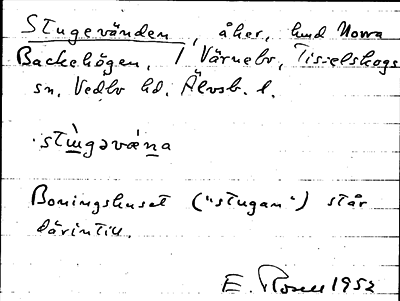 Stugevänden, åker, hmd Norra
Backehögen, 1 Värnebo, Tisselskogs
sn, Vedbo hd. Älvsb. l.
stɯ̀gəvæ̀na
Boningshuset ("stugan") står
därintill.
E. Rosell 1952